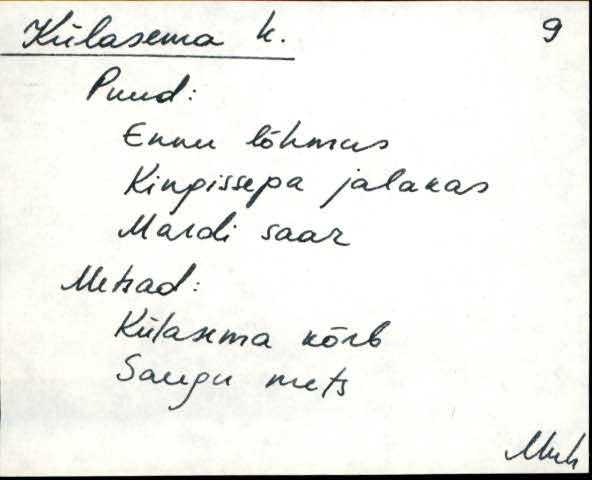 Külasema k. 9
Puud:
Ennu lõhmus
Kingissepa jalakas
Mardi saar
Metsad:
Külasema kõrb
Saugu mets
Muh